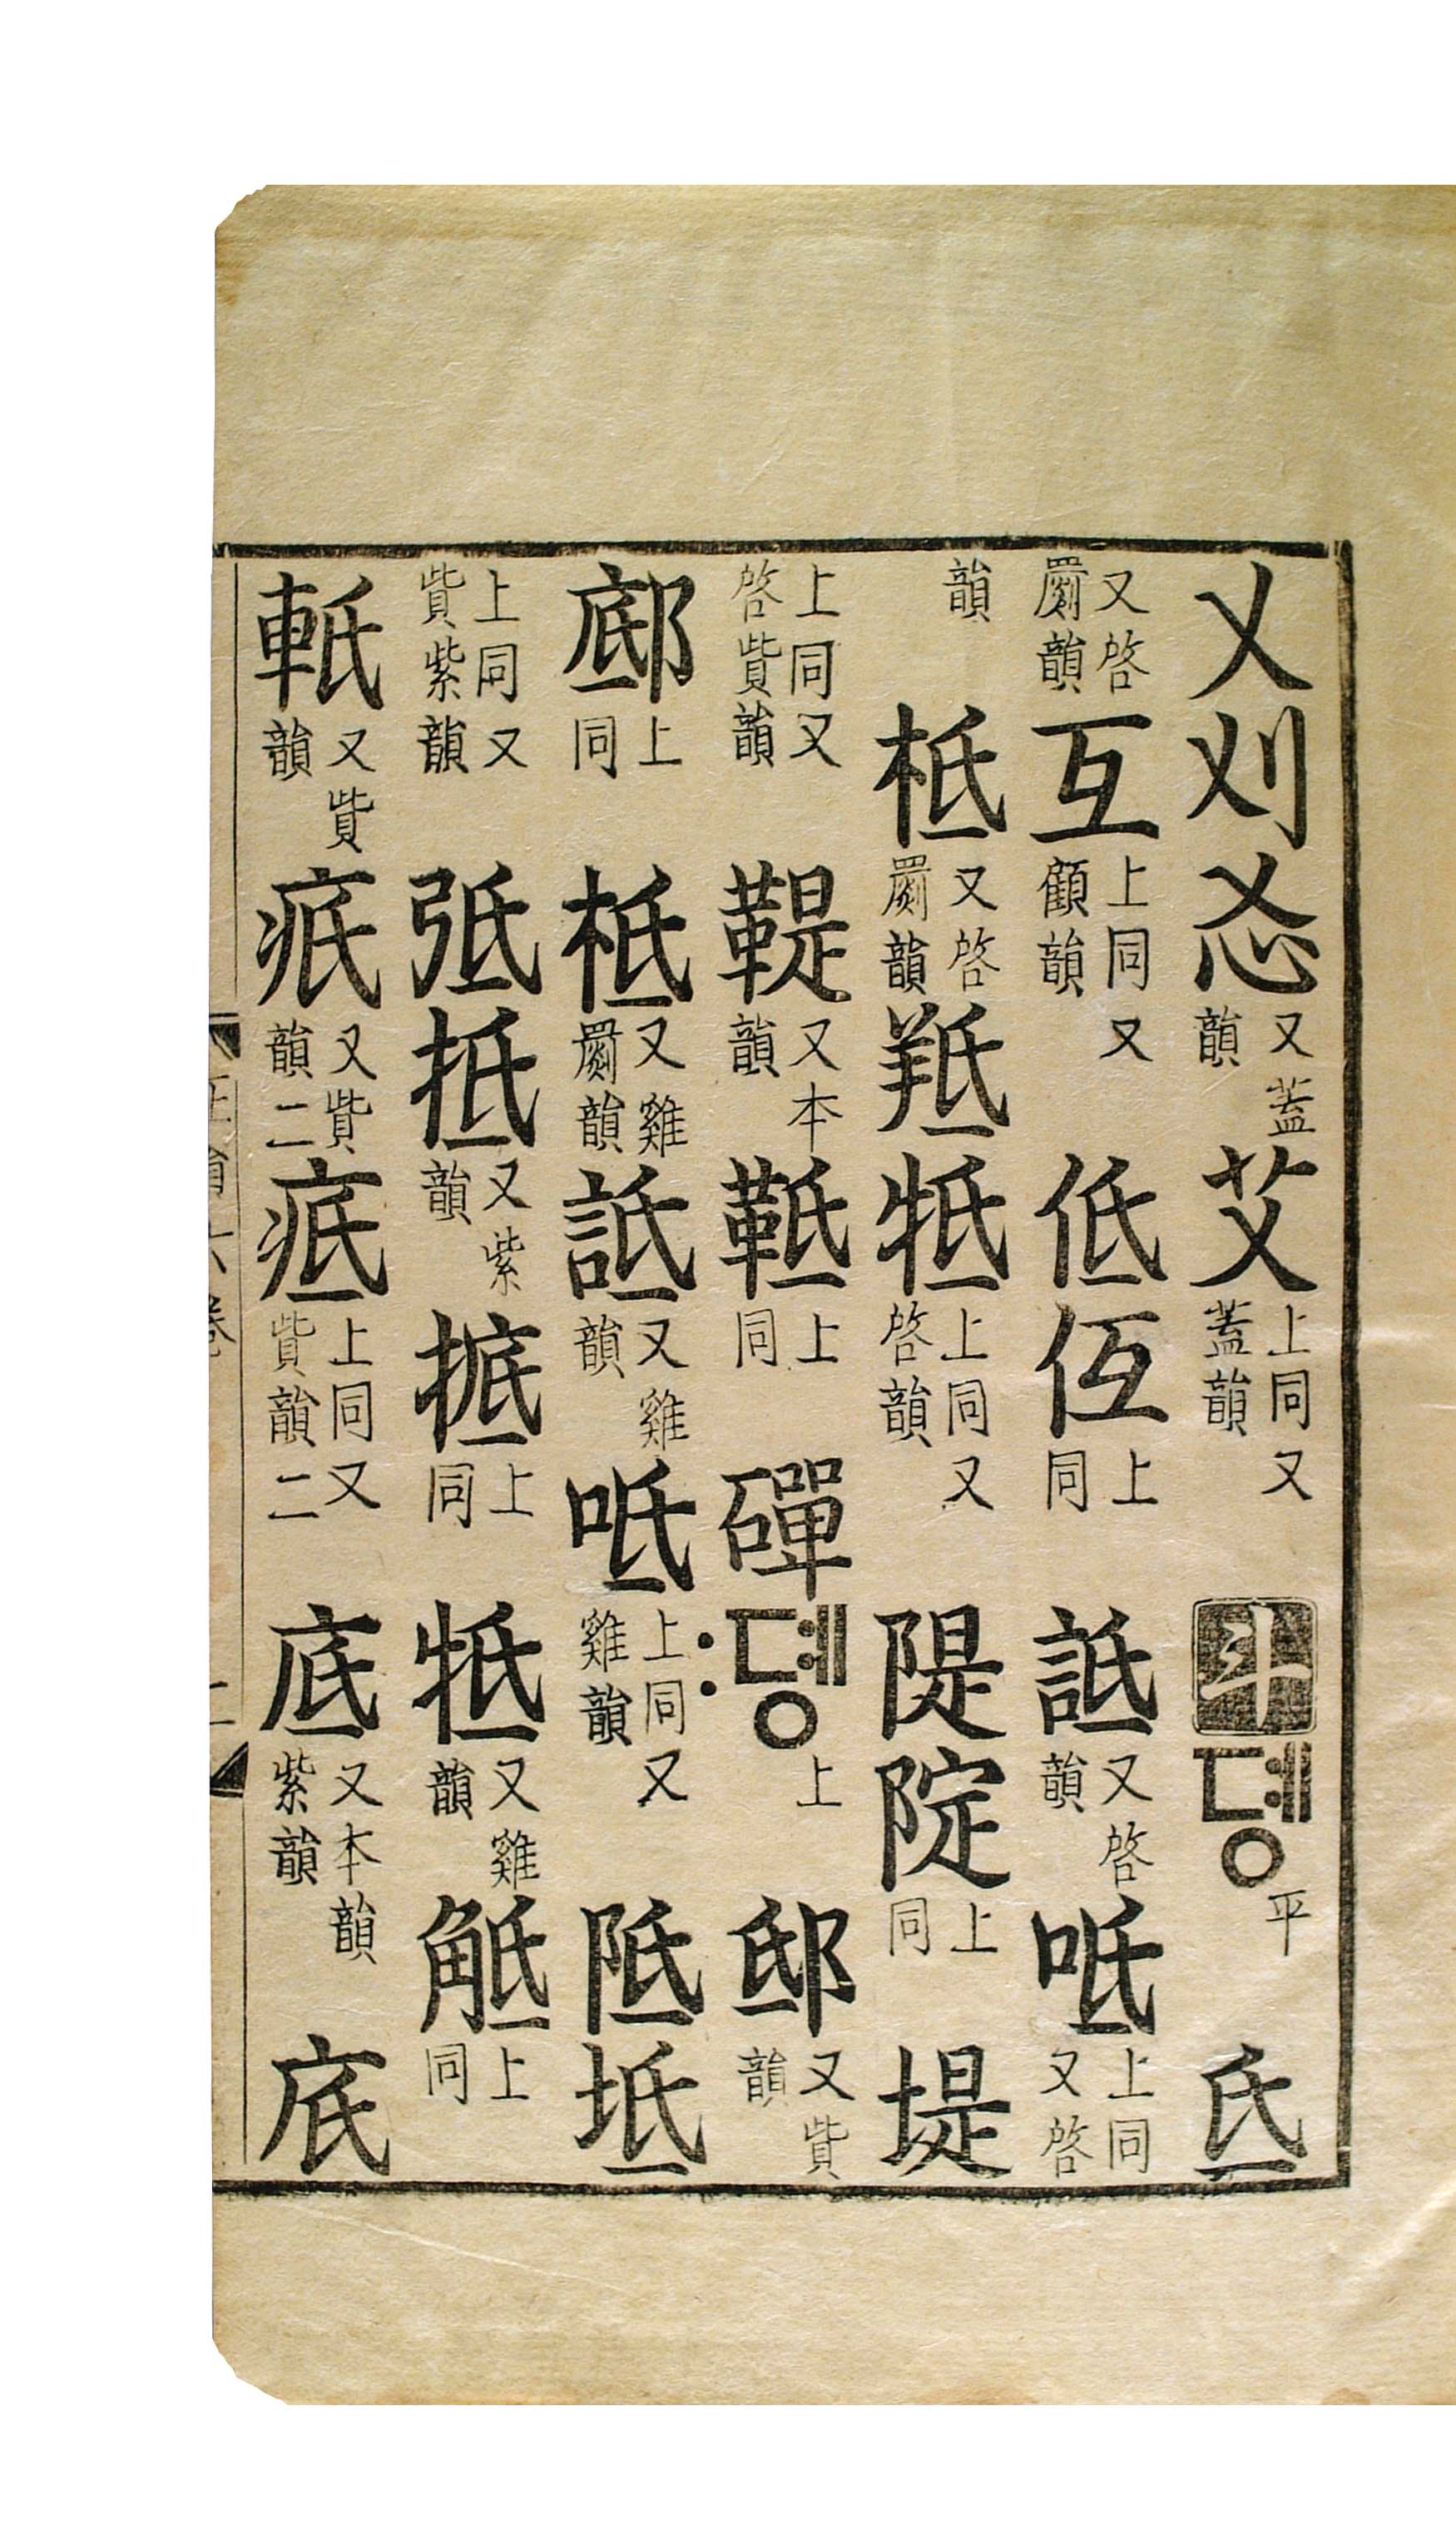 乂刈㣻又蓋韻艾上同又蓋韻斗뎽平氐
又啓罽韻互上同又顧韻低仾上同詆又啓韻呧上同又啓
韻柢又啓罽韻羝牴上同又啓韻隄上同堤
上同又啓貲韻鞮又本韻上同磾:뎽上邸又貲韻
上同柢又雞罽韻詆又雞韻呧上同又雞韻阺坻
上同又貲紫韻弤抵又紫韻掋上同牴又雞韻觝上同
軧又貲韻疧又貲韻二疷上同又貲韻二底又本韻紫韻㡳